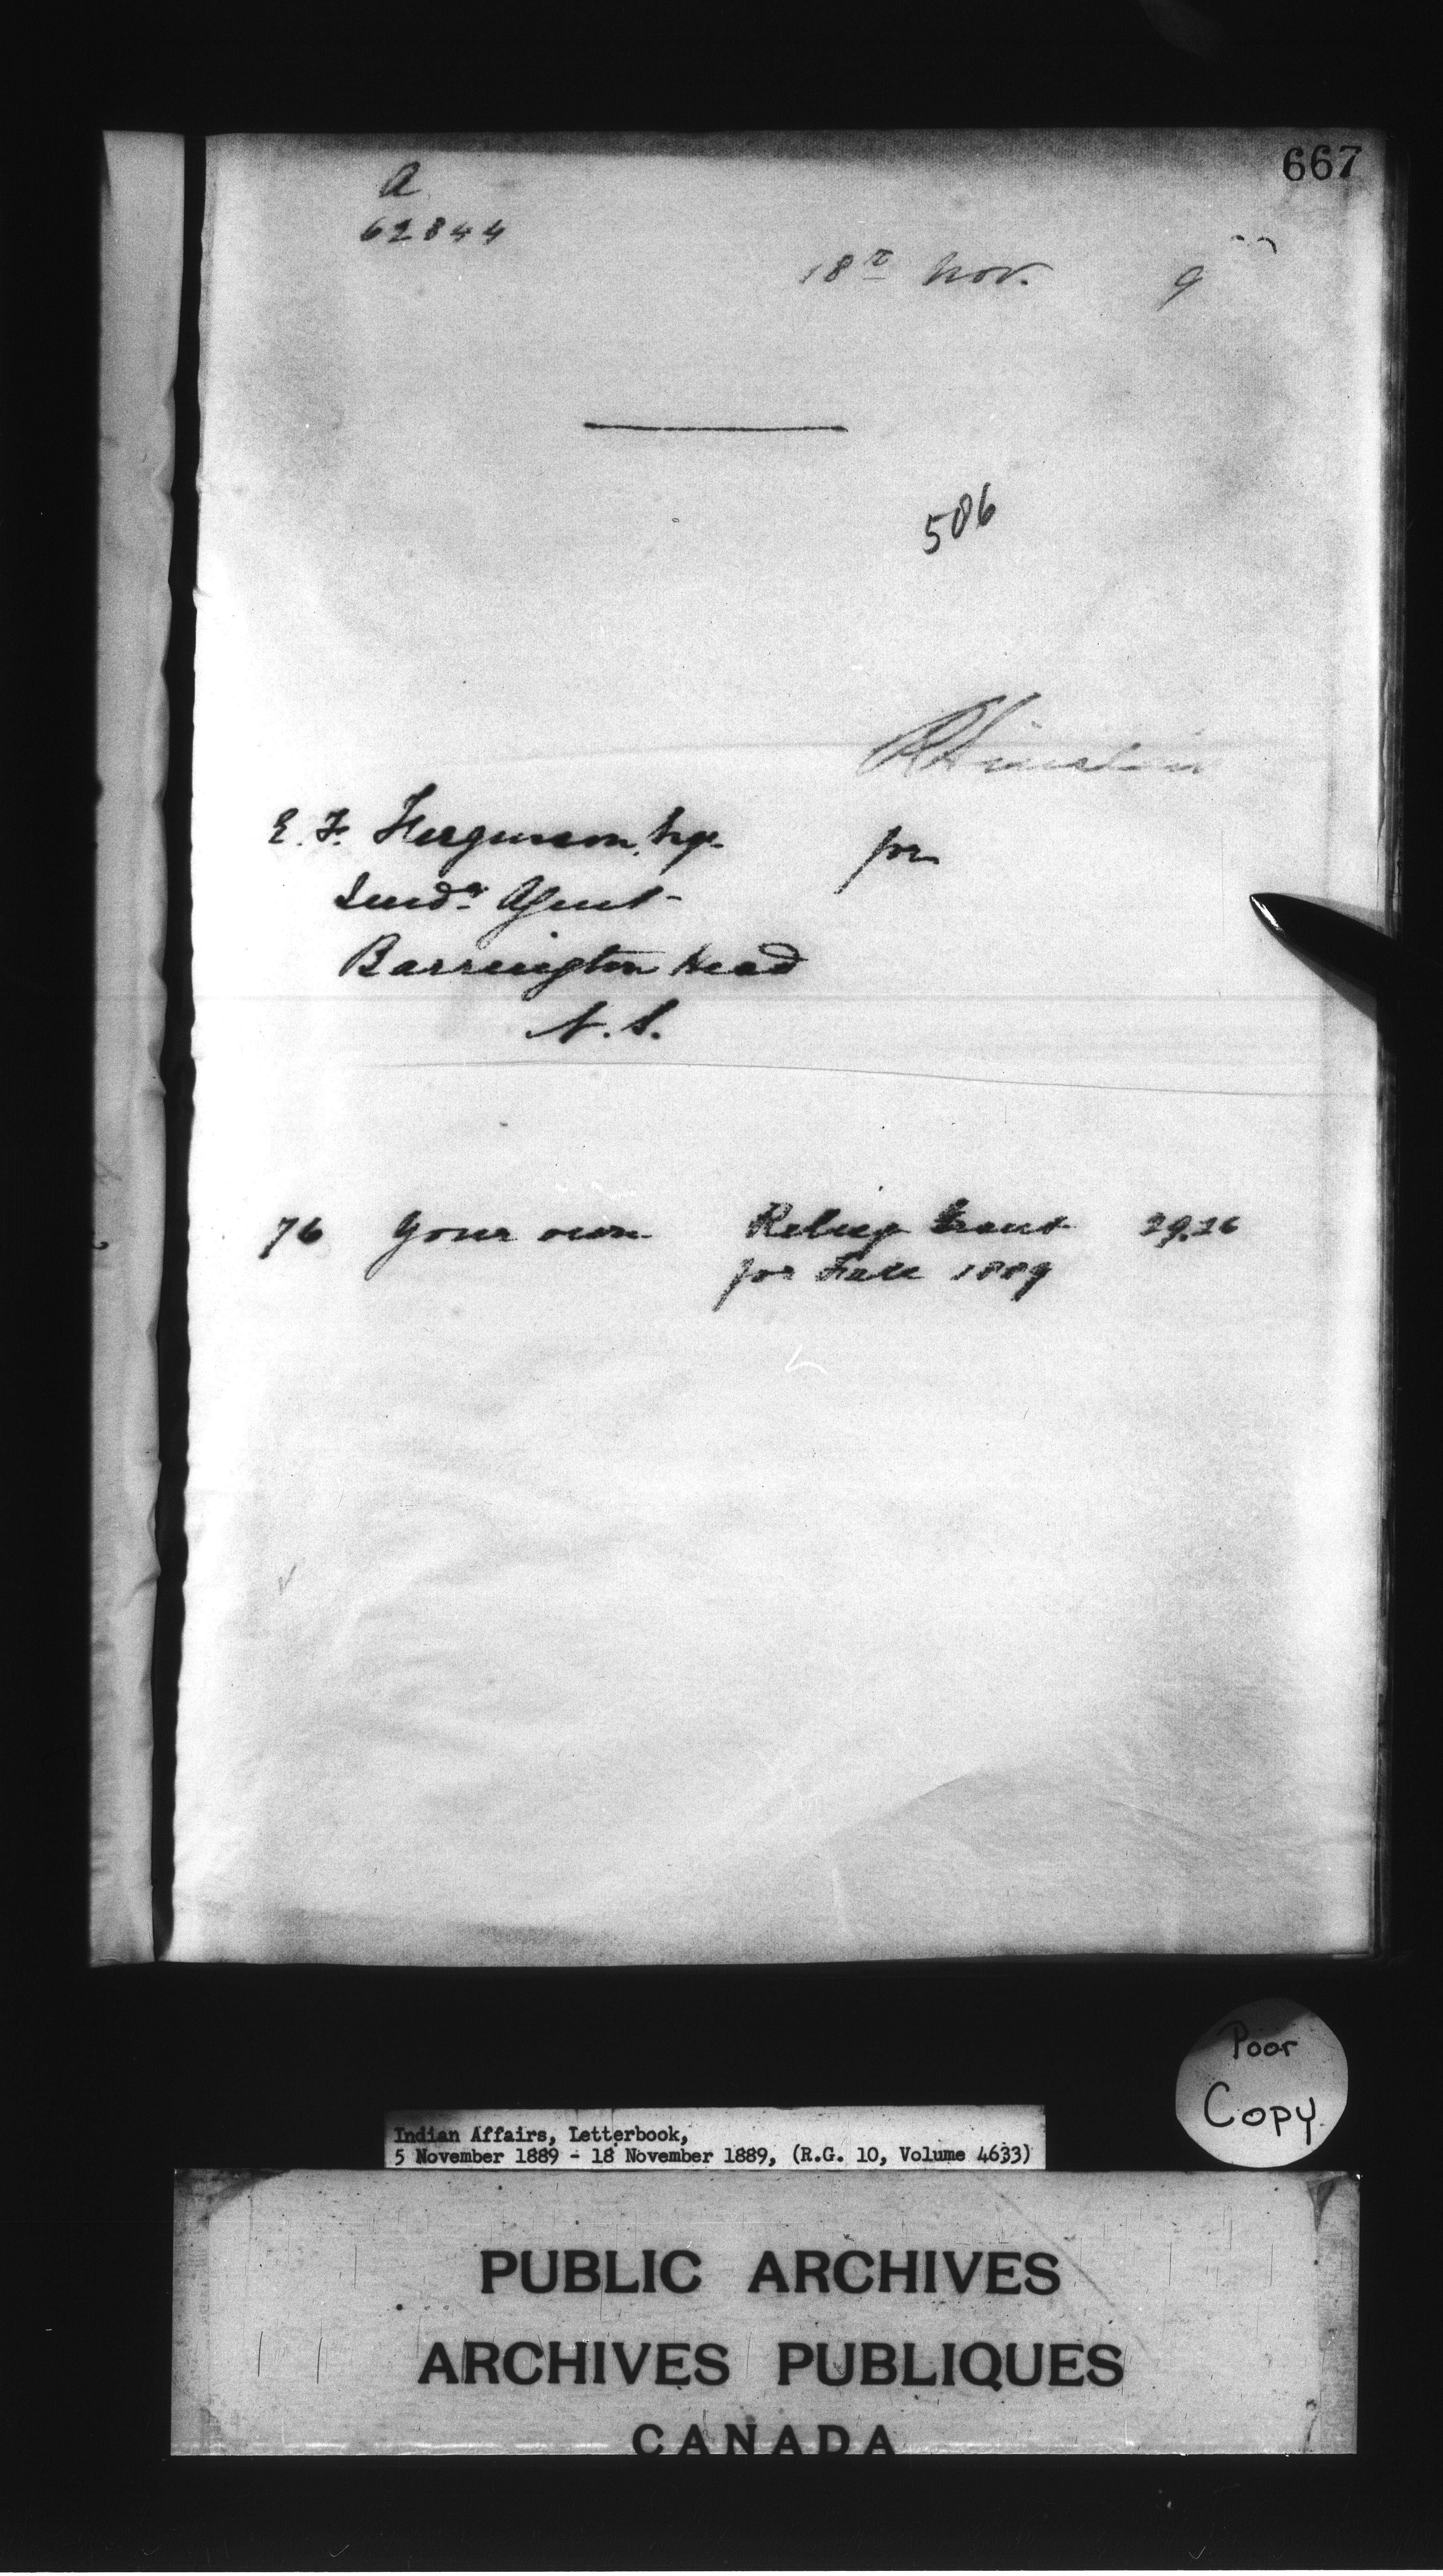 667
a
62844
18th Nov. 9
506
for
E. F. Ferguson, Esq.
Indn Agent
Barrington Head
N. S.
76 Your own Relief Grant 29.26
for Fall 1889
Poor
Copy
Indian Affairs, Letterbook,
5 November 1889 - 18 November 1889, (R.G. 10, Volume 4633)
PUBLIC ARCHIVES
ARCHIVES PUBLIQUES
CANADA